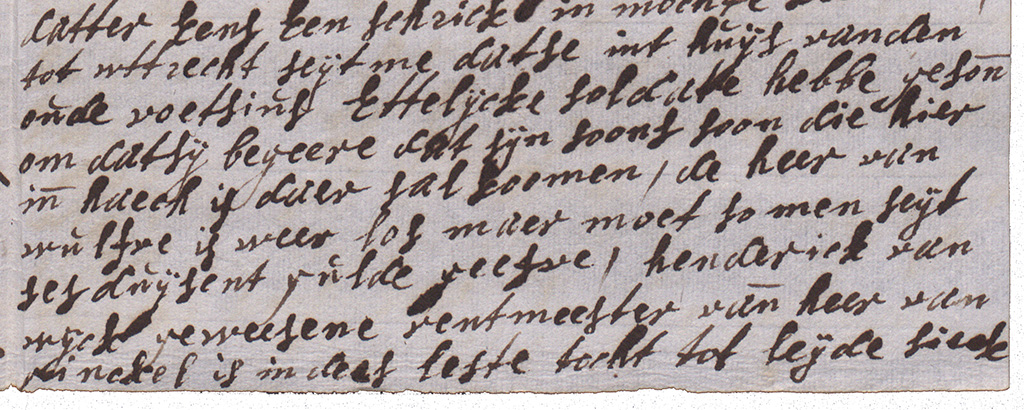 datter eens een schrick in mochte
tot uttrecht seijt me datse int huijs vanden
oude voetsius ettelijcke soldate hebbe geson̄
om datsij begeere dat sijn soons soon die hier
in̄ haech is daer sal koomen / de heer van
wulfve is weer los maer moet so men seijt
ses duijsent gulde geefve / henderick van
wijck geweesene rentmeester van̄ heer van
ginckel is in dees leste tocht tot leijde sieck